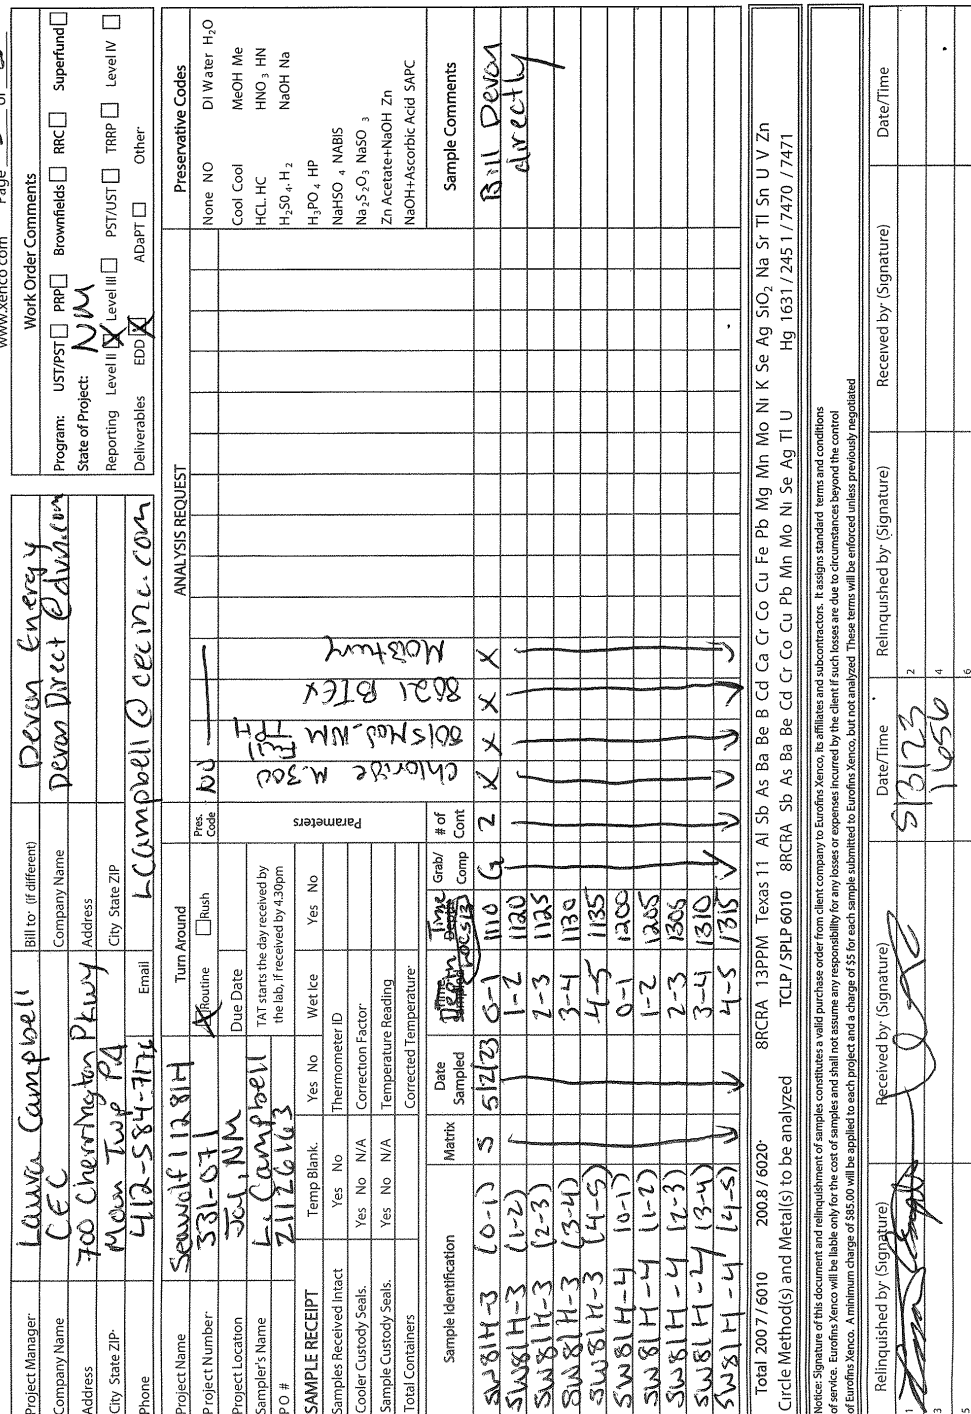 www.xenco.com Page of
Project Manager: Laura Campbell Bill to: (if different) Devon Energy
Company Name CEC Company Name Devon Direct @dvn.com
Address 700 Cherrington Pkwy Address
City State ZIP: Moon Twp PA City State ZIP
Phone 412-584-7176 Email LCampbell @ cecinc.com
Work Order Comments
Program: UST/PST PRP Brownfields RRC Superfund
State of Project: NM
Reporting Level II X Level III PST/UST TRRP Level IV
Deliverables EDD X ADaPT Other
Project Name Seawolf 1 12 81H Turn Around
Project Number: 331-071 Routine Rush
Project Location Jal, NM Due Date
Sampler's Name L. Campbell TAT starts the day received by the lab, if received by 4.30pm
PO # 21126163
SAMPLE RECEIPT Temp Blank. Yes No Wet Ice Yes No
Samples Received Intact Yes No Thermometer ID
Cooler Custody Seals. Yes No N/A Correction Factor
Sample Custody Seals. Yes No N/A Temperature Reading
Total Containers Corrected Temperature:
ANALYSIS REQUEST
Pres. Code NO
Parameters
Chloride M.300
8015 Mod. NM Full TPH
8021 BTEX
Moisture
Preservative Codes
None NO DI Water H2O
Cool Cool MeOH Me
HCL. HC HNO3 HN
H2SO4. H2 NaOH Na
H3PO4 HP
NaHSO4 NABIS
Na2S2O3 NaSO3
Zn Acetate+NaOH Zn
NaOH+Ascorbic Acid SAPC
Sample Identification Matrix Date Sampled Depth Time Grab/ Comp # of Cont Sample Comments
SW81H-3 (0-1) S 5/2/23 0-1 1110 G 2 X X X X Bill Devon
SW81H-3 (1-2) 1-2 1120 directly
SW81H-3 (2-3) 2-3 1125
SW81H-3 (3-4) 3-4 1130
SW81H-3 (4-5) 4-5 1135
SW81H-4 (0-1) 0-1 1200
SW81H-4 (1-2) 1-2 1205
SW81H-4 (2-3) 2-3 1305
SW81H-4 (3-4) 3-4 1310
SW81H-4 (4-5) 4-5 1315
Total 200 7 / 6010 200.8 / 6020: 8RCRA 13PPM Texas 11 Al Sb As Ba Be B Cd Ca Cr Co Cu Fe Pb Mg Mn Mo Ni K Se Ag SiO2 Na Sr Tl Sn U V Zn
Circle Method(s) and Metal(s) to be analyzed TCLP / SPLP 6010 8RCRA Sb As Ba Be Cd Cr Co Cu Pb Mn Mo Ni Se Ag Tl U Hg 1631 / 245 1 / 7470 / 7471
Notice: Signature of this document and relinquishment of samples constitutes a valid purchase order from client company to Eurofins Xenco, its affiliates and subcontractors. It assigns standard terms and conditions
of service. Eurofins Xenco will be liable only for the cost of samples and shall not assume any responsibility for any losses or expenses incurred by the client if such losses are due to circumstances beyond the control
of Eurofins Xenco. A minimum charge of $85.00 will be applied to each project and a charge of $5 for each sample submitted to Eurofins Xenco, but not analyzed These terms will be enforced unless previously negotiated
Relinquished by (Signature) Received by: (Signature) Date/Time Relinquished by: (Signature) Received by: (Signature) Date/Time
1 5/3/23 1656 2
3 4
5 6